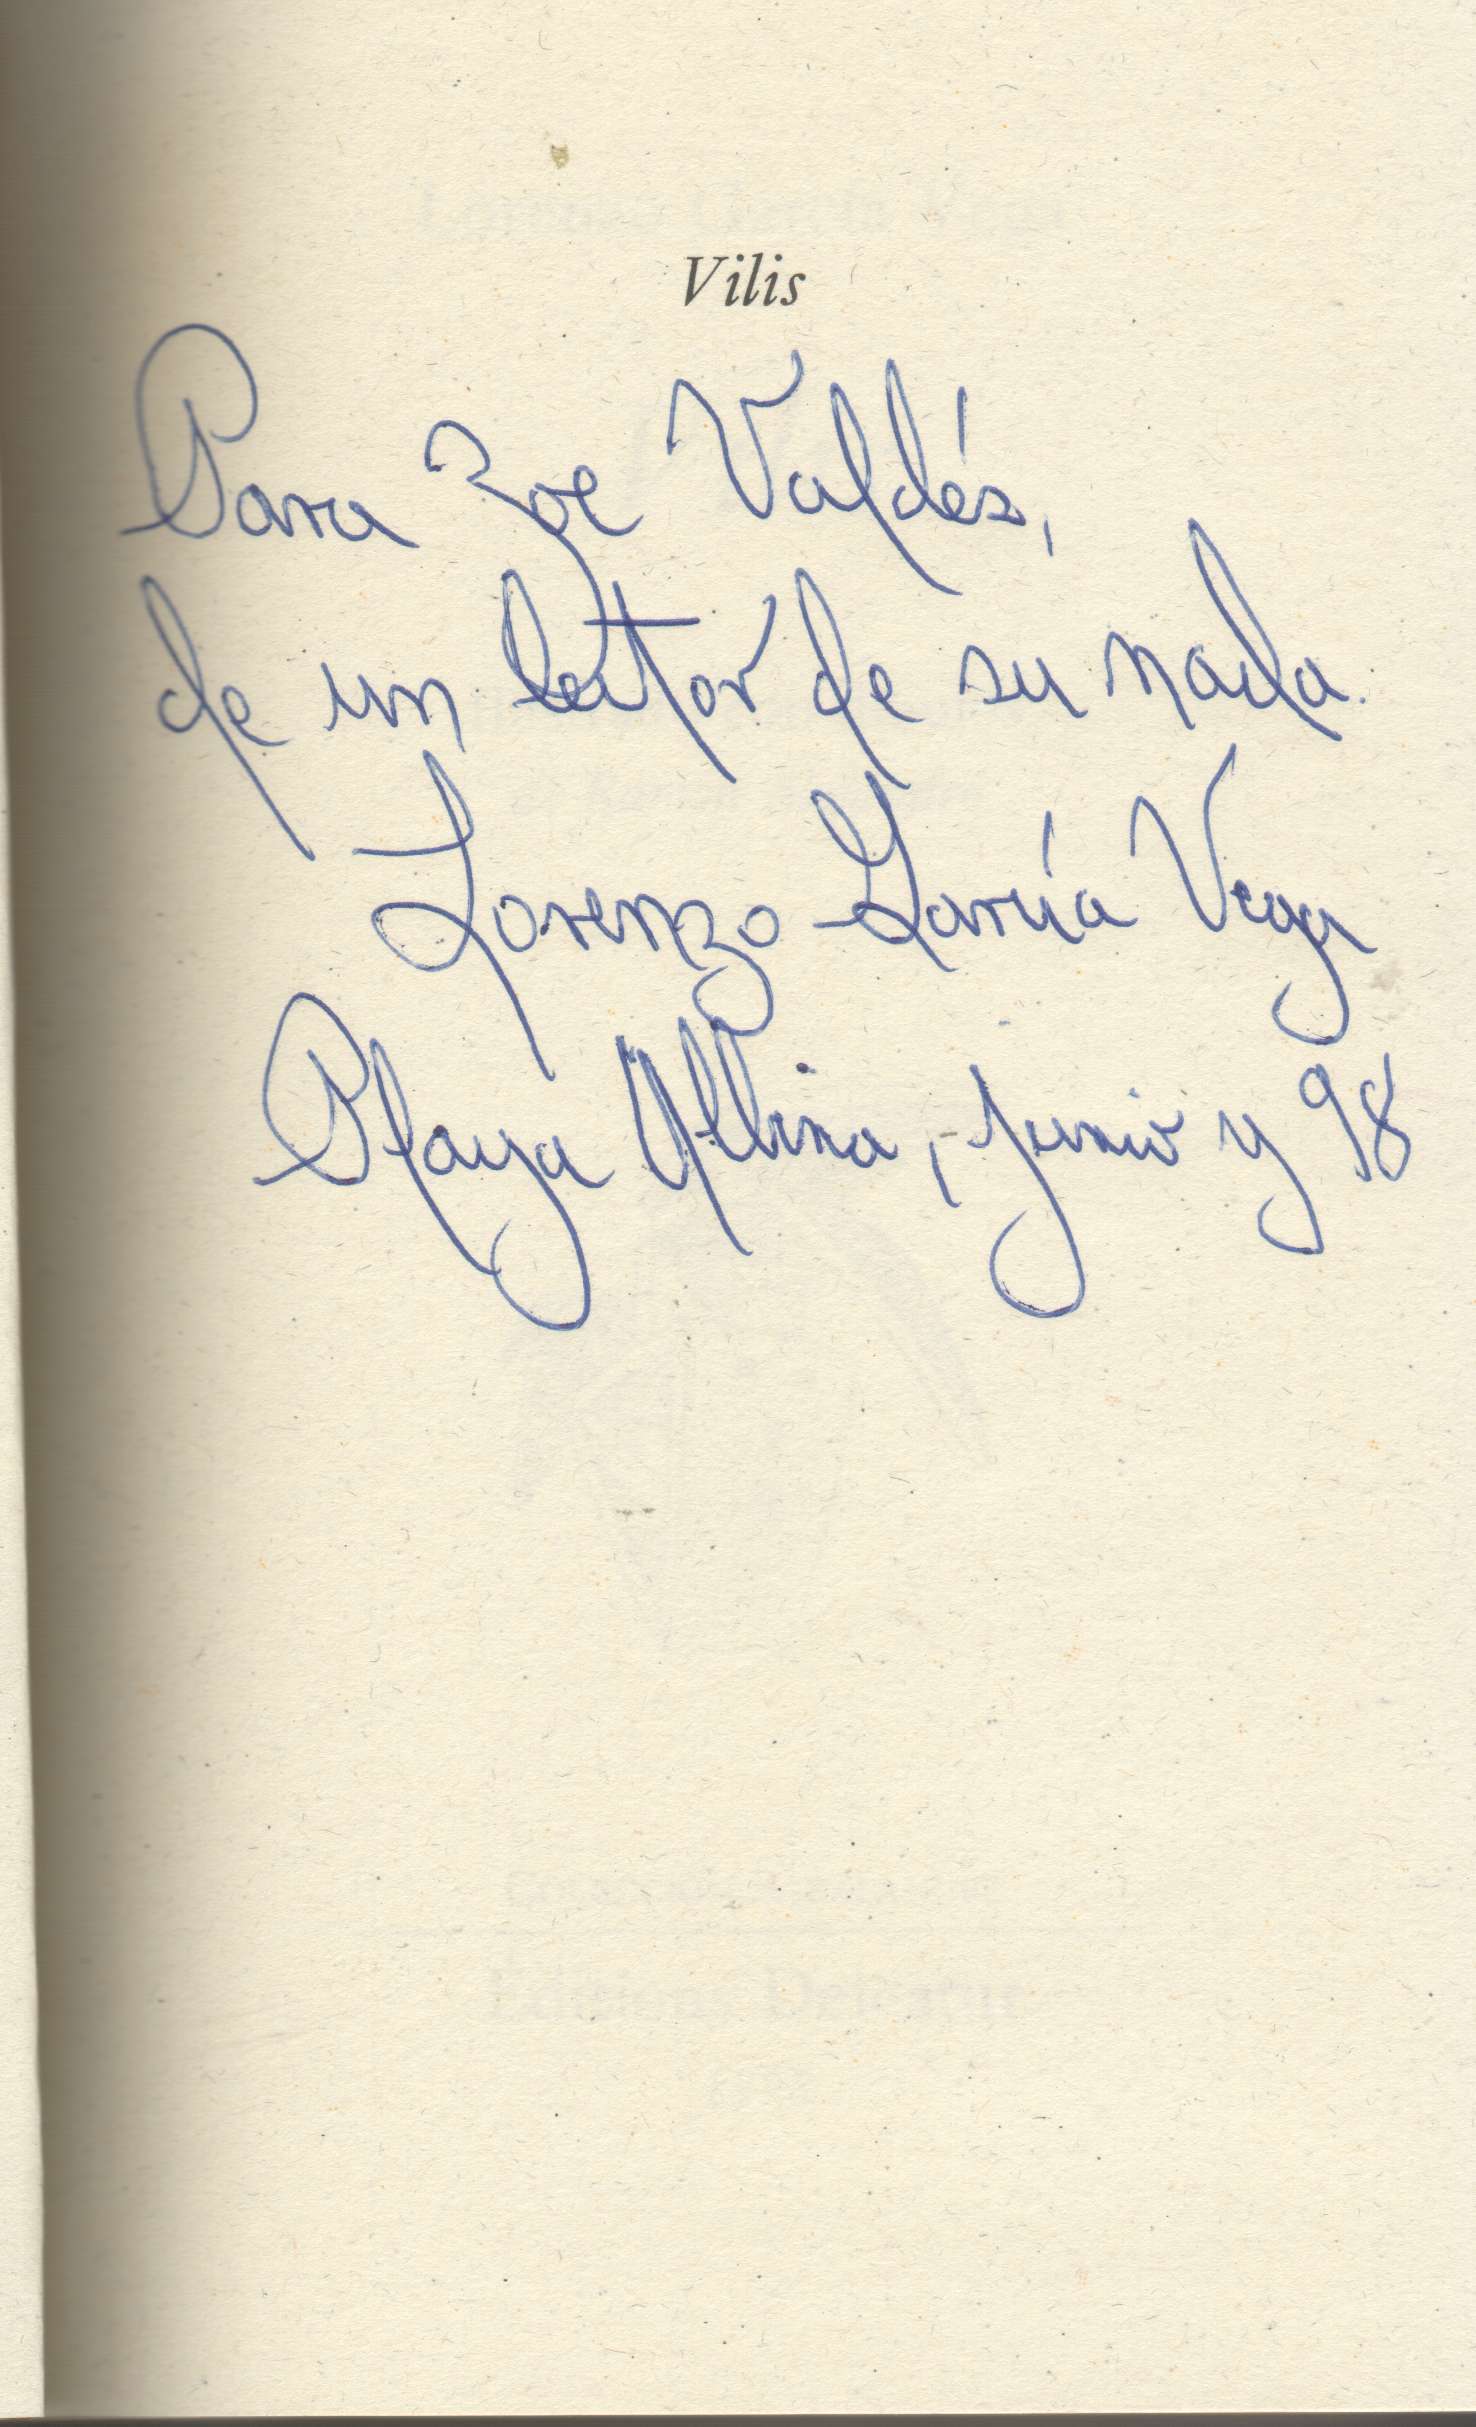 Vilis
Para Zoe Valdés,
de un lector de su nada.
Lorenzo García Vega
Playa Albina, junio y 98